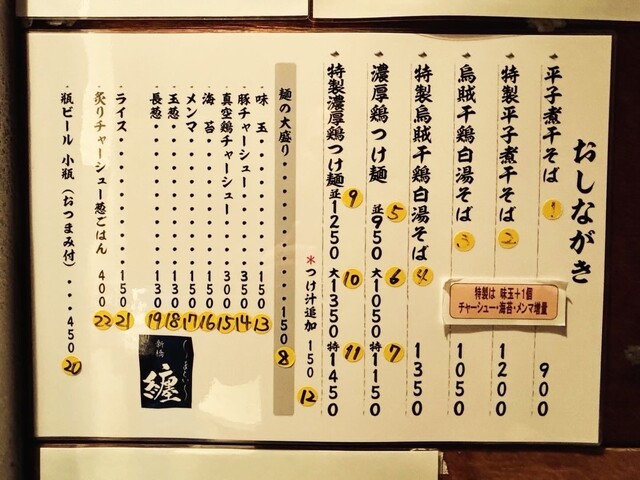 おしながき
平子煮干そば 1 900
特製平子煮干そば 2 1200
烏賊干鶏白湯そば 3 1050
特製烏賊干鶏白湯そば 4 1350
特製は 味玉+1個
チャーシュー・海苔・メンマ増量
濃厚鶏つけ麺 並 5 950 大 6 1050 特 7 1150
特製濃厚鶏つけ麺 並 9 1250 大 10 1350 特 11 1450
*つけ汁追加 150 12
麺の大盛り・・・・・・・・150 8
味玉・・・・・・・・150 13
豚チャーシュー・・・・350 14
真空鶏チャーシュー・・・300 15
海苔・・・・・・・・150 16
メンマ・・・・・・・150 17
玉葱・・・・・・・・130 18
長葱・・・・・・・・130 19
ライス・・・・・・・・150 21
炙りチャーシュー葱ごはん 400 22
瓶ビール 小瓶(おつまみ付)・・・450 20
新橋
纏